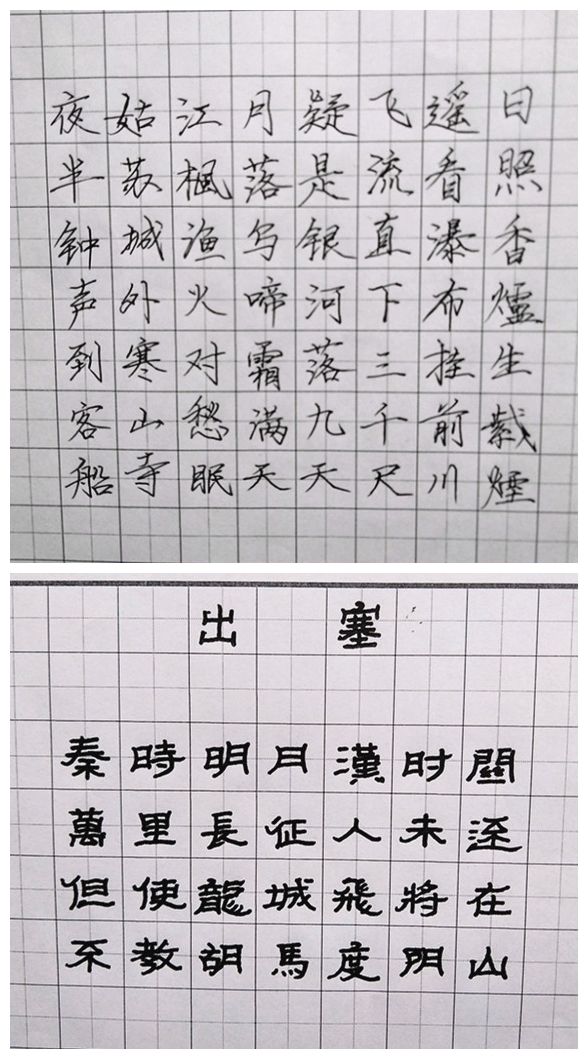 日照香爐生紫煙
遥看瀑布挂前川
飞流直下三千尺
疑是银河落九天
月落乌啼霜满天
江楓渔火对愁眠
姑苏城外寒山寺
夜半钟声到客船
出塞
秦時明月漢时關
萬里長征人未還
但使龍城飛將在
不教胡馬度阴山